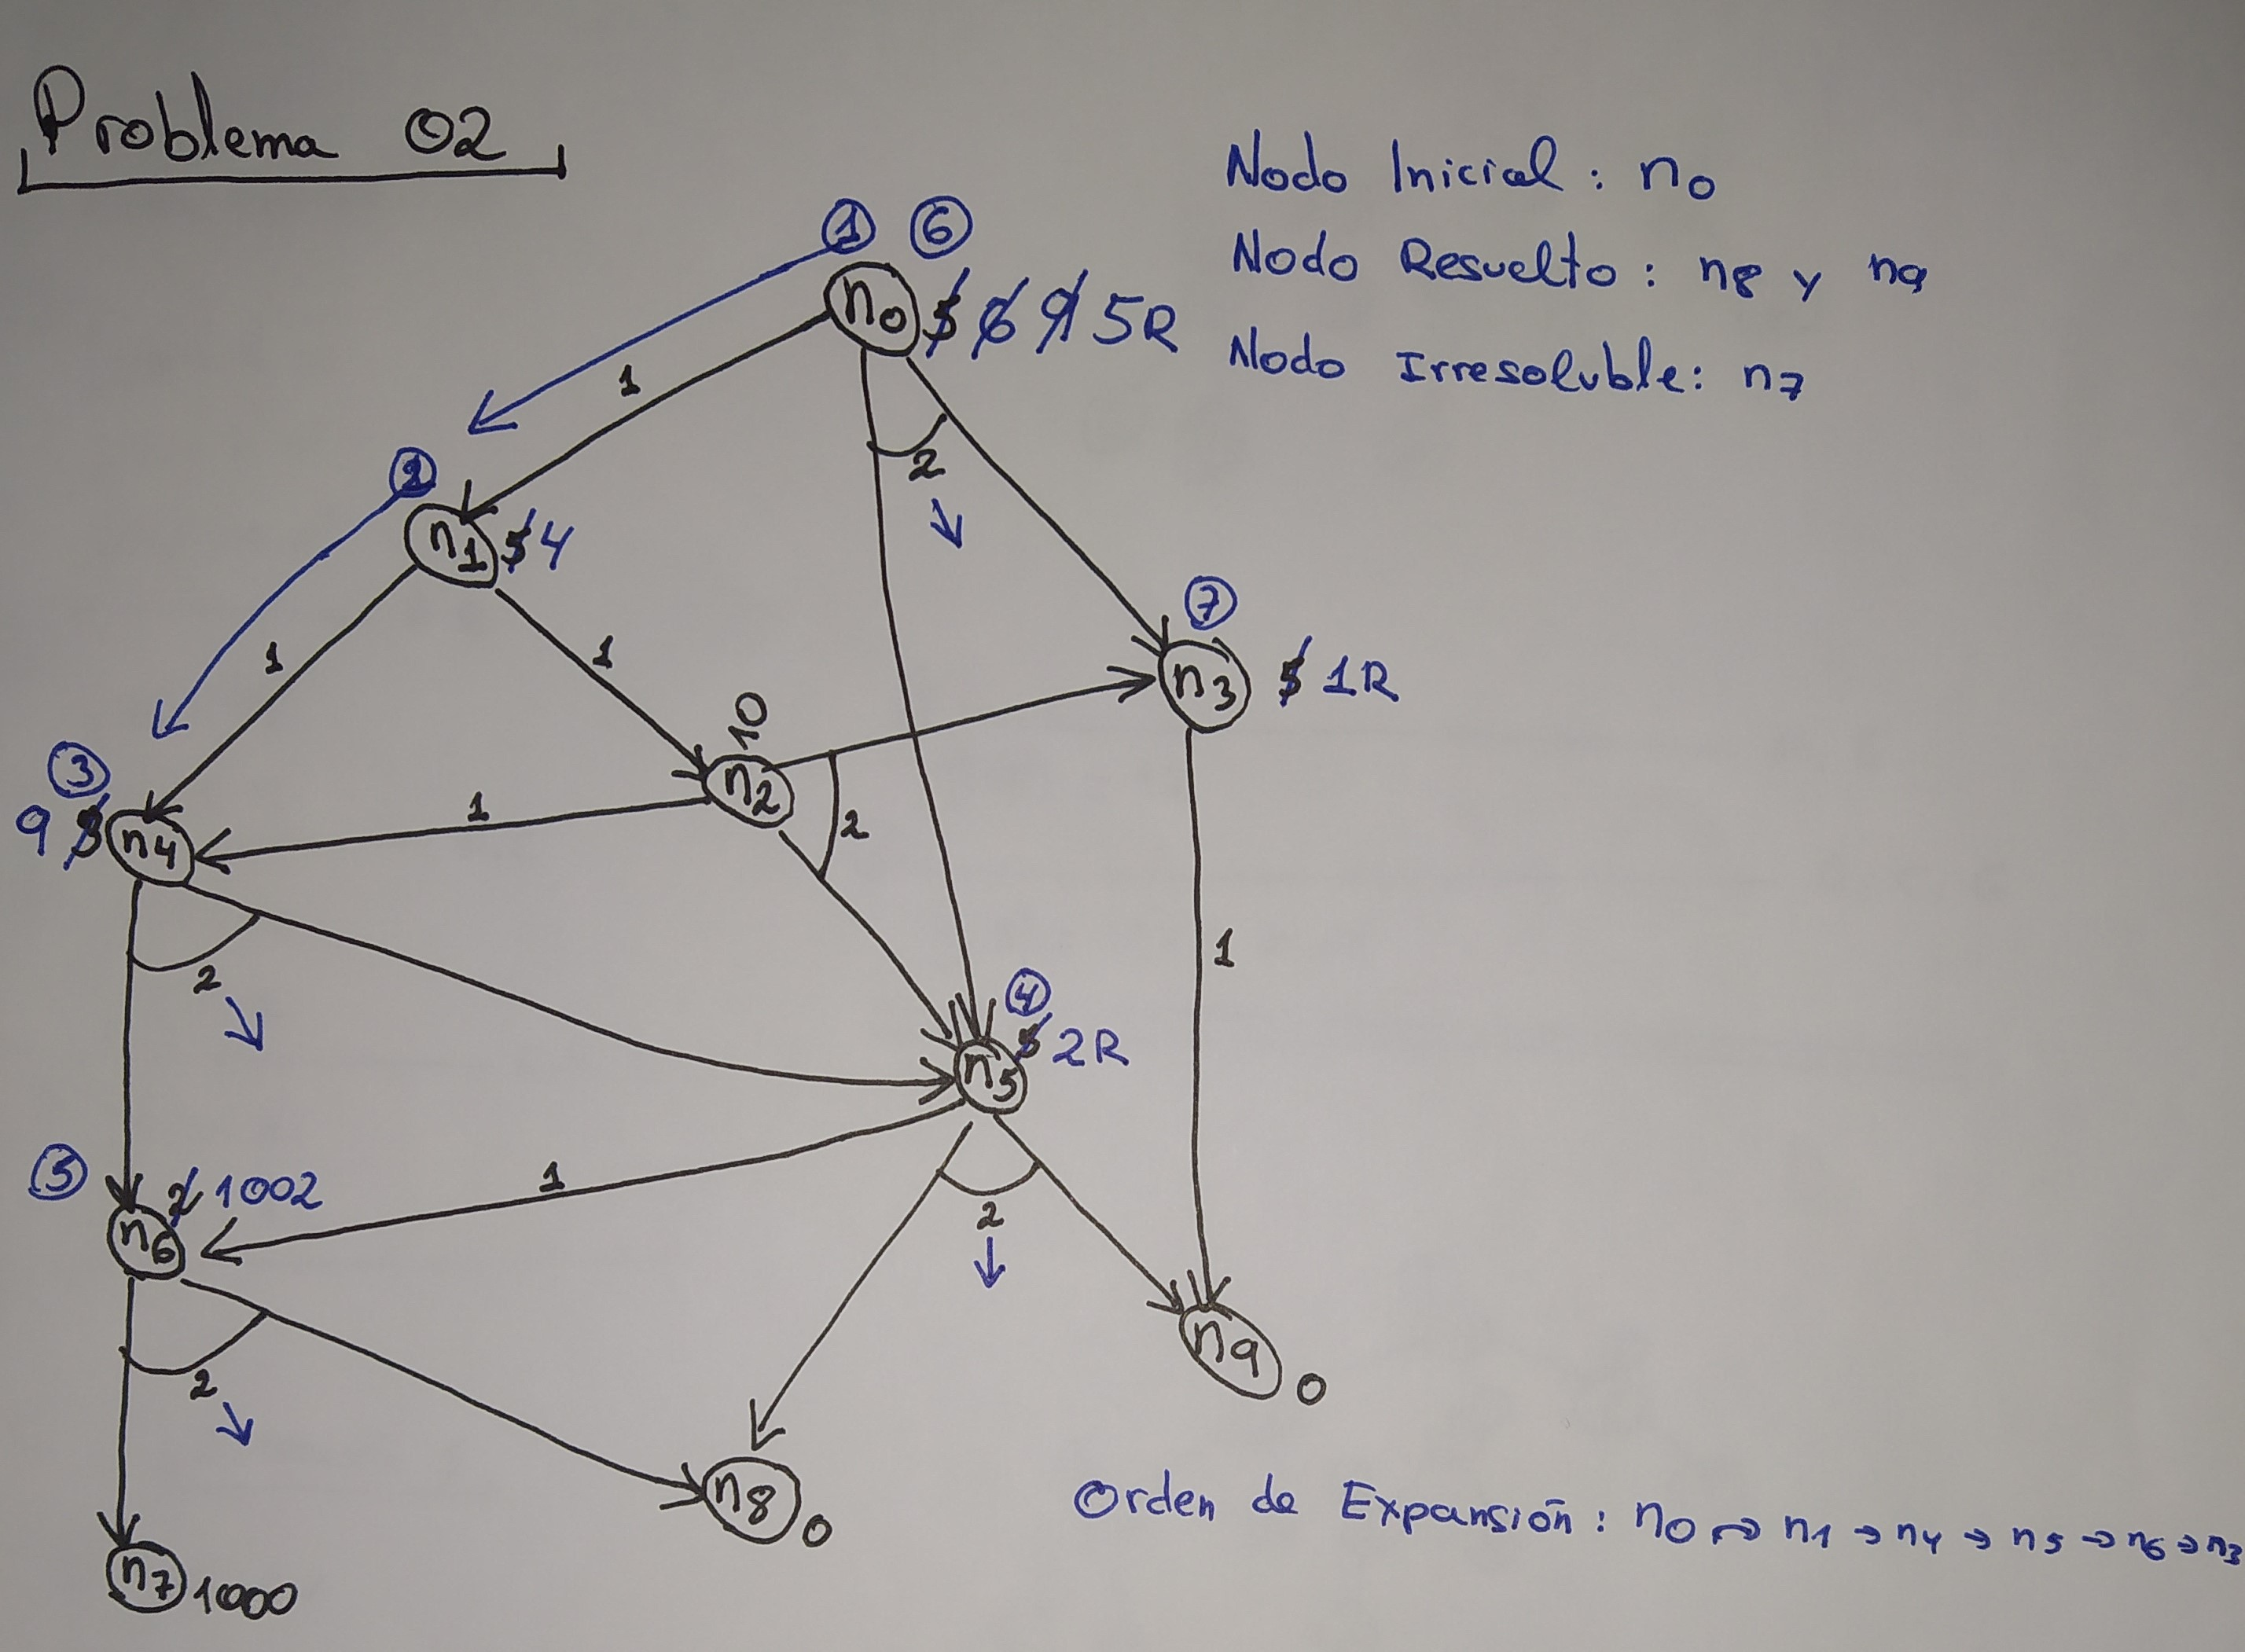 Problema 02
Nodo Inicial : n0
Nodo Resuelto : n8 y n9
Nodo Irresoluble: n7
1 6
n0 6 9 5R
1
2
2
n1 4
1
1
7
n3 1R
10
n2
2
1
3
9
n4
2
4
n5 2R
1
2
1
5
1002
n6
2
n9 0
n8 0
n7 1000
Orden de Expansión : n0 → n1 → n4 → n5 → n6 → n3